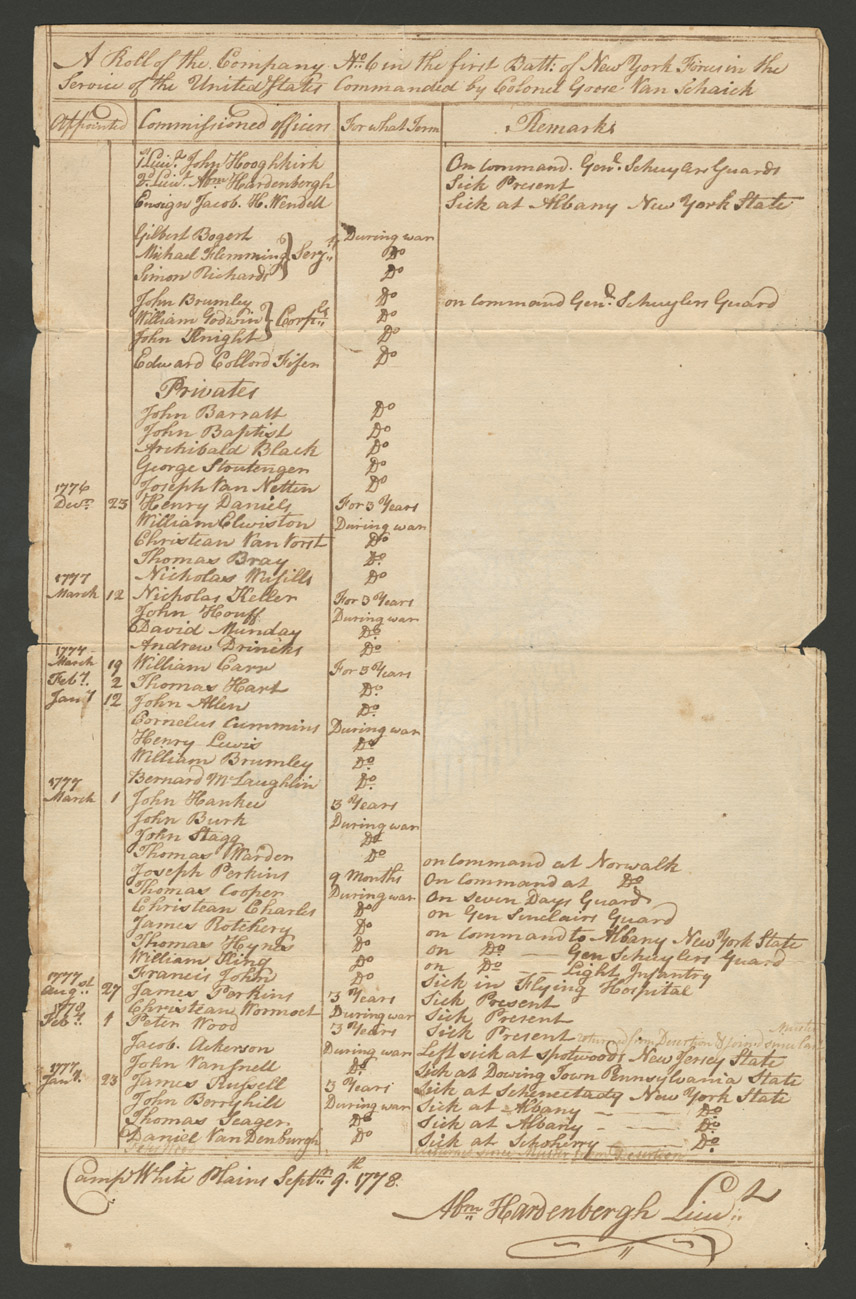 A Roll of the Company No. 6 in the first Batt: of New York Forces in the
Service of the United States Commanded by Colonel Goose Van Schaick
Appointed Commissioned officers For what Term Remarks
1st Lieut. John Hooghkirk On command. Genl. Schuylers Guards
2d. Lieut. Abm Hardenbergh Sick Present
Ensign Jacob. H. Wendell Sick at Albany New York State
Gilbert Bogert During war
Michael Flemming } Serjts Do
Simon Richards Do
John Brumley Do on command Genl. Schuylers Guard
William Godwin } Corpls Do
John Knight Do
Edward Collord Fifer Do
Privates
John Barratt Do
John Baptist Do
Archibald Black Do
George Stoutenger Do
Joseph Van Netten Do
1776
Decr. 23 Henry Daniels For 3 Years
William Elwiston During war
Christean Van Vorst Do
Thomas Bray Do
Nicholas Do
1777
March 12 Nicholas Keller For 3 Years
John Houff During war
David Munday Do
Andrew Drincks Do
1777
March 19 William Carr For 3 Years
Feby. 2 Thomas Hart Do
Jany 12 John Allen Do
Cornelius Cummins During war
Henry Lewis Do
William Brumley Do
Bernard McLaughlin Do
1777
March 1 John Hanker 3 Years
John Burk During war
John Stagg Do
Thomas Warden Do on command at Norwalk
Joseph Perkins 9 Months On Command at Do
Thomas Cooper During war On Seven Days Guard
Christean Charles Do on Gen Sinclairs Guard
James Rotchery Do on command to Albany New York State
Thomas Hynes Do on Do — Gen Schuylers Guard
William King Do on Do — Light Infantry
Francis John Do Sick in Flying Hospital
1777
Augst 27 James Porkins 3 Years Sick Present
Christean Wormoet During war Sick Present
1778
Feby. 1 Peter Wood 3 Years Sick Present returned from Desertion & joind since last Muster
Jacob. Ackerson During war Left sick at Spotwoods New Jersey State
John Vansnell Do Sick at Dowing Town Pennsylvania State
1777
Jany. 23 James Russell 3 Years Sick at Schenectady New York State
John Berryhill During war Sick at Albany — — Do
Thomas Seager Do Sick at Albany — — Do
Daniel Van Denburgh Do Sick at Schoherry — Do
since Muster from Desertion
Camp White Plains Septr. 9.th 1778.
Abm Hardenbergh Lieut